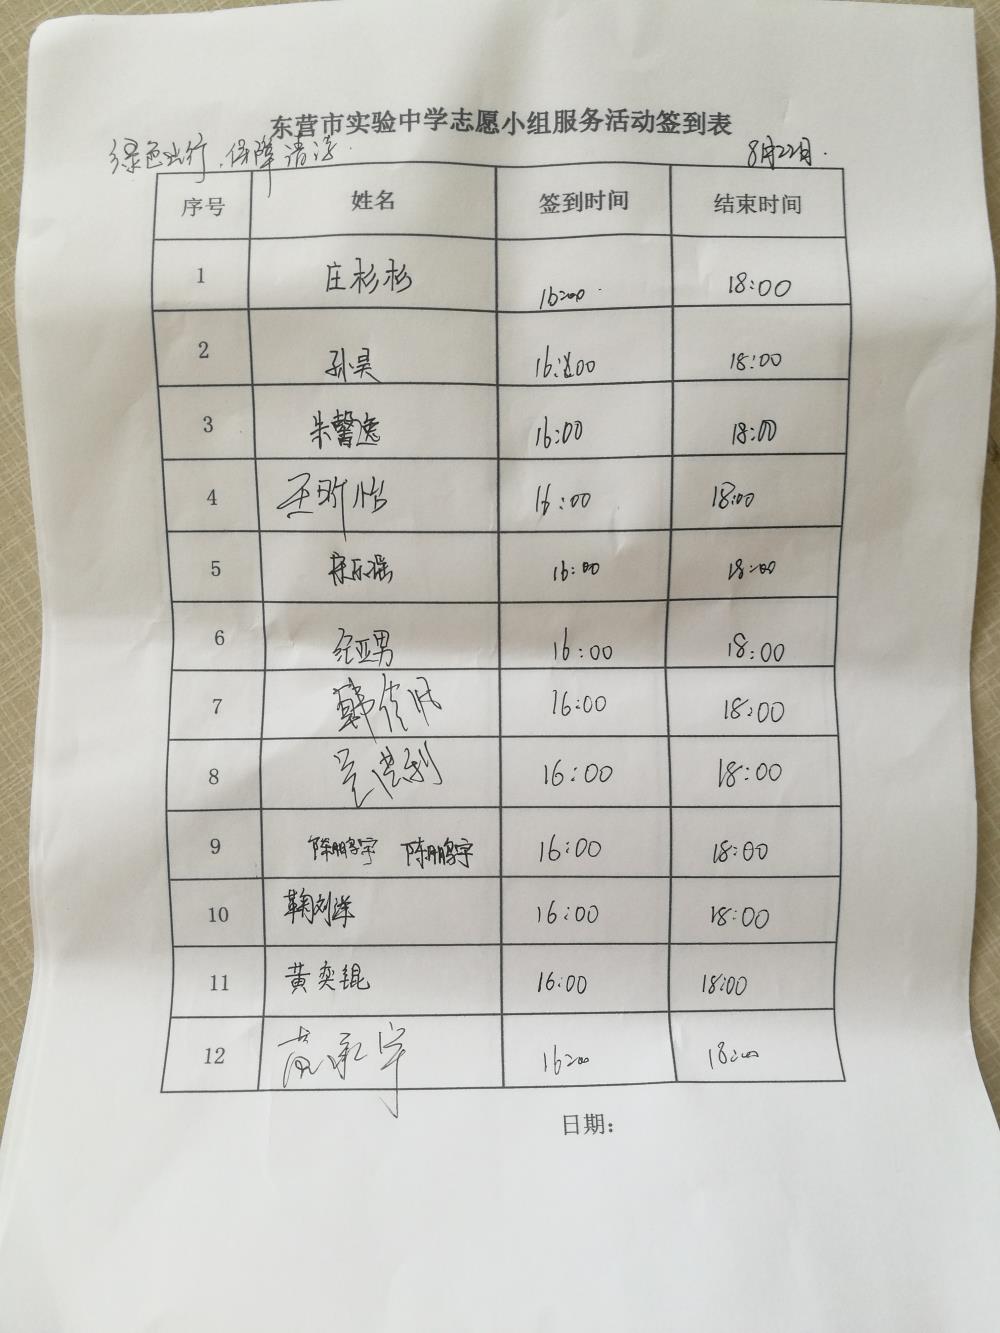 东营市实验中学志愿小组服务活动签到表
绿色出行,保障清洁. 8月22日.
序号 姓名 签到时间 结束时间
1 庄杉杉 16:00 18:00
2 孙昊 16:00 18:00
3 朱馨逸 16:00 18:00
4 王昕怡 16:00 18:00
5 乐瑶 16:00 18:00
6 纪亚男 16:00 18:00
7 韩 16:00 18:00
8 16:00 18:00
9 陈鹏宇 陈鹏宇 16:00 18:00
10 鞠刘洋 16:00 18:00
11 黄奕锟 16:00 18:00
12 承宇 16:00 18:00
日期：